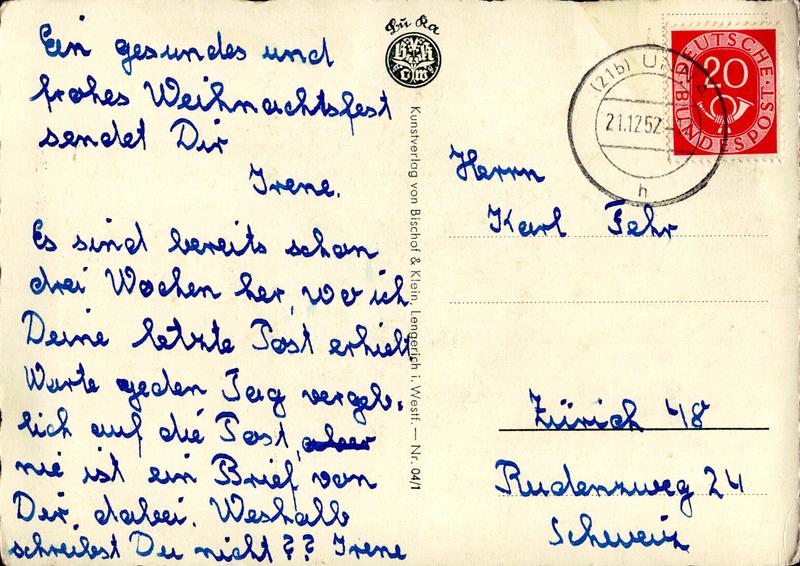 Ein gesundes und
frohes Weihnachtsfest
sendet Dir
Irene.
Es sind bereits schon
drei Wochen her, wo ich
Deine letzte Post erhielt.
Warte geden Tag vergeb-
lich auf die Post, aber
nie ist ein Brief von
Dir, dabei. Weshalb
schreibst Du nicht?? Irene
Bu Ka
B&K
Kunstverlag von Bischof & Klein, Lengerich i. Westf. — Nr. 04/1
(21b) UNNA
21.12.52
h
DEUTSCHE BUNDESPOST
20
Herrn
Karl Fehr
Zürich 48
Rudenzweg 24
Schweiz